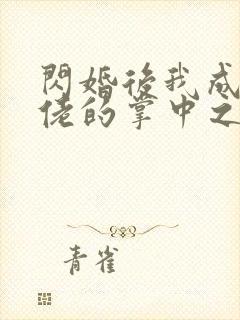 閃婚後我成
佬的掌中之
青雀